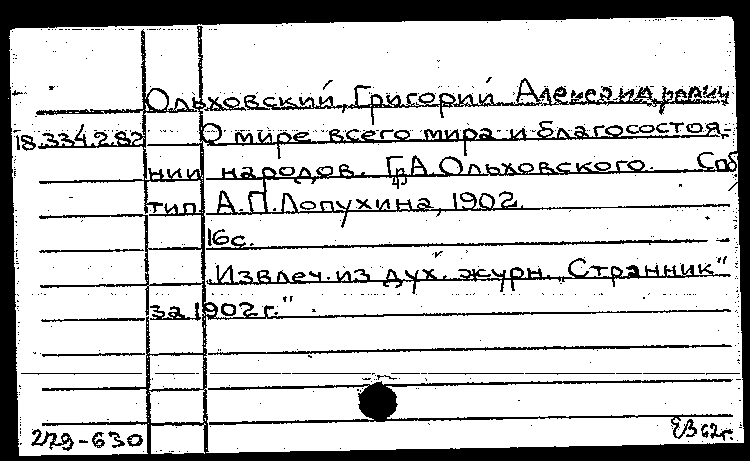 Ольховский, Григорий Александрович
18.334.2.82 О мире всего мира и благосостоя-
нии народов. Г.А. Ольховского. Спб
тип. А.П. Лопухина, 1902.
16 с.
Извлеч. из дух. журн. „Странник"
за 1902 г."
279-630
62 г.